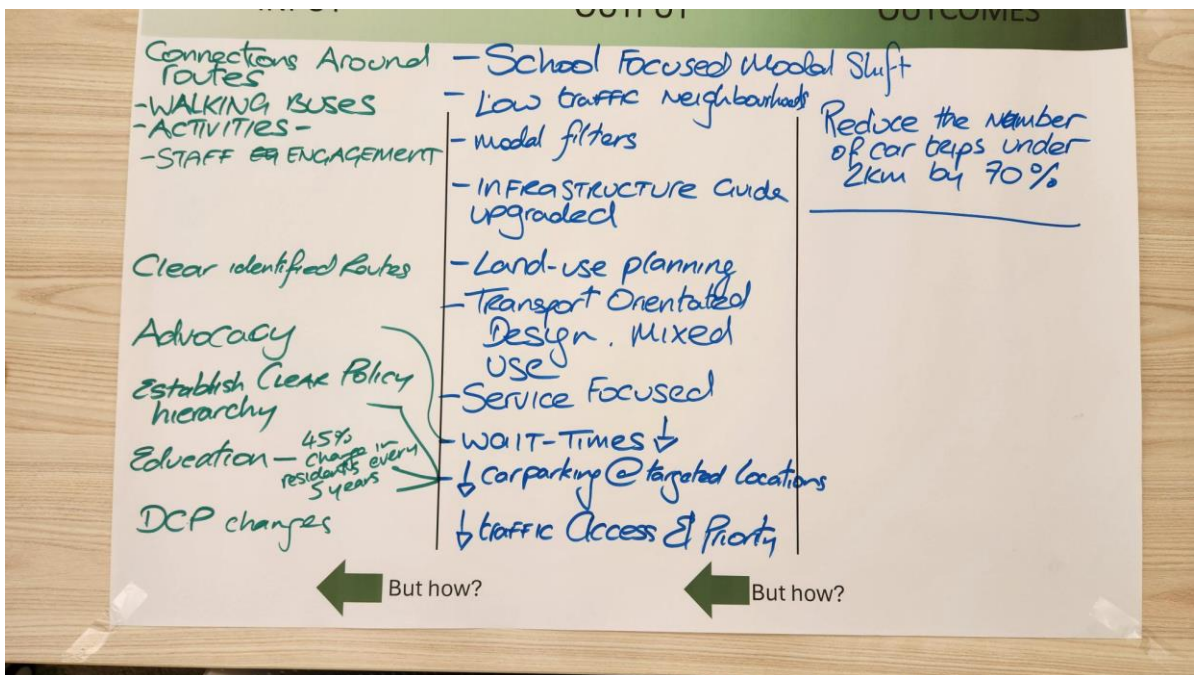 INPUT
OUTPUT
OUTCOMES
Connections Around
routes
- WALKING BUSES
- ACTIVITIES -
- STAFF ENGAGEMENT
Clear identified Routes
Advocacy
Establish CLEAR Policy
hierarchy
Education - 45%
change in
residents every
5 years
DCP changes
- School Focused Modal Shift
- Low traffic Neighbourhoods
- modal filters
- INFRASTRUCTURE Guide
upgraded
- Land-use planning
- Transport Orientated
Design. Mixed
USE
- Service Focused
- WAIT-Times ↓
- ↓ carparking @ targeted locations
↓ traffic Access & Priority
Reduce the Number
of car trips under
2km by 70%
But how?
But how?